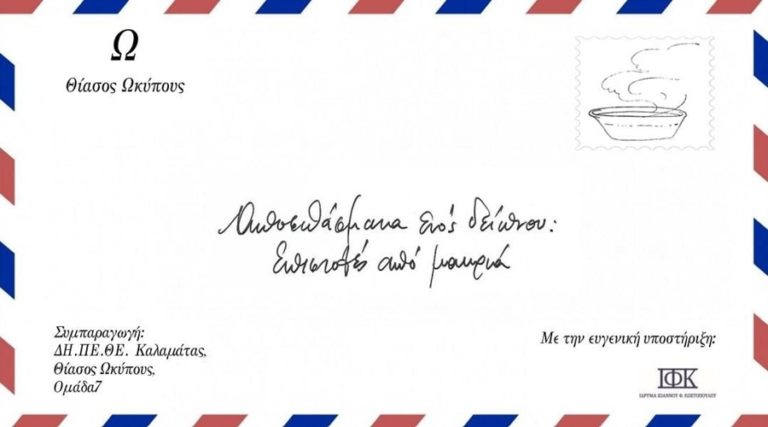 Ω
Θίασος Ωκύπους
Αποσπάσματα ενός δείπνου:
Επιστολές από μακριά
Συμπαραγωγή:
ΔΗ.ΠΕ.ΘΕ. Καλαμάτας,
Θίασος Ωκύπους,
Ομάδα7
Με την ευγενική υποστήριξη:
ΙΦΚ
ΙΔΡΥΜΑ ΙΩΑΝΝΟΥ Φ. ΚΩΣΤΟΠΟΥΛΟΥ